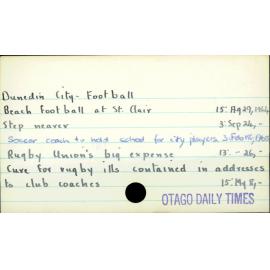 Dunedin City - Football
Beach Football at St. Clair 15. Ag 29, 1964
Step nearer 3. Sep 24, -
Soccer coach to hold school for city players 3. Feb 16, 1965
Rugby Union's big expense 13. - 26, -
Cure for rugby ills contained in addresses
to club coaches 15. My 8, -
OTAGO DAILY TIMES